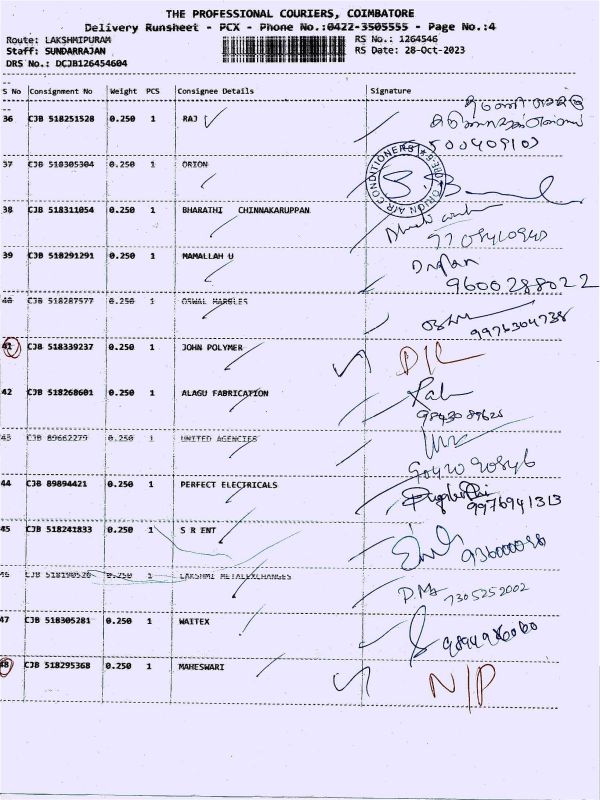 THE PROFESSIONAL COURIERS, COIMBATORE
Delivery Runsheet - PCX - Phone No.:0422-3505555 - Page No.:4
Route: LAKSHMIPURAM RS No.: 1264546
Staff: SUNDARRAJAN RS Date: 28-Oct-2023
DRS No.: DCJB126454604
S No Consignment No Weight PCS Consignee Details Signature
36 CJB 518251528 0.250 1 RAJ
5004091
37 CJB 518305304 0.250 1 ORION
ORION AIR CONDITIONERS
38 CJB 518311054 0.250 1 BHARATHI CHINNAKARUPPAN
39 CJB 518291291 0.250 1 MAMALLAH U
9600288022
40 CJB 518287577 0.250 1 OSWAL MARBLES
9976304738
41 CJB 518339237 0.250 1 JOHN POLYMER D/L
42 CJB 518268601 0.250 1 ALAGU FABRICATION
9843089625
43 CJB 89662279 0.250 1 UNITED AGENCIES
44 CJB 89894421 0.250 1 PERFECT ELECTRICALS
9976941313
45 CJB 518241833 0.250 1 S R ENT
46 CJB 518190520 0.250 1 LAKSHMI METALEXCHANGES
7305252002
47 CJB 518305281 0.250 1 WAITEX
48 CJB 518295368 0.250 1 MAHESWARI N/P